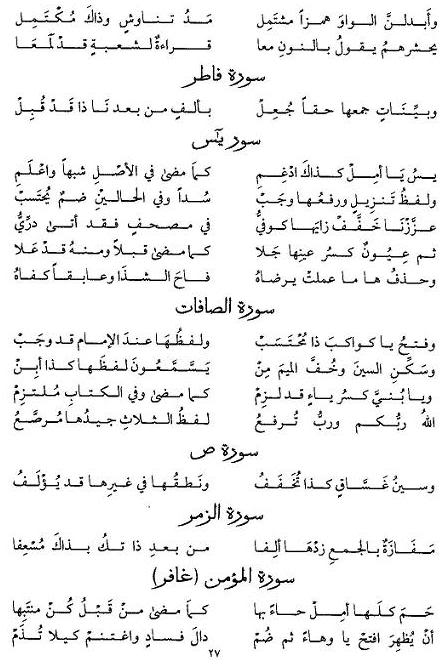 وأبدلنَّ الواوَ همزاً مشتمِل مَدُ تناوشٍ وذاكَ مُكْتَمِل
يحشرهمُ يقولُ بالنونِ معا قراءةٌ لشعبةٍ قدْ لمَعَا
سورة فاطر
وبيِّنَاتٍ جمعها حقاً جُعِلْ بألفٍ من بعد نَا ذا قَدْ قُبِلْ
سور يآس
يسُ يَا أمِلْ كذاكَ ادْغِمِ كما مضىٰ في الأصْلِ شبهاً واعْلَمِ
ولفظُ تنزيلٍ ورفعُها وجَبْ سُداً وفي الحالينِ ضمٌ يُحْتَسَبْ
عزَّزْنَا خفِّفْ زايَها كوفيُّ في مصحفٍ فقد أتىٰ درِّيُّ
ثم عِيُونٌ كسرُ عينِها جَلا كما مضىٰ قبلاً ومنهُ قدْ عَلا
وحذفُ ها ما عملتْ يرضاهُ فاحَ الشذَا وعابقاً كفاهُ
سورة الصافات
وفتحُ با كواكبَ ذا مُحْتَسَبْ ولفظُها عندَ الإمامِ قد وجَبْ
وسكِّنِ السينَ وخُفَّ الميمَ مِنْ يَسَّمَّعُونَ لفظَها كذا أبِنْ
ويا بُنيَّ كسرُ ياءٍ قد لزِمْ كما مضىٰ وفي الكتابِ مُلتزِمْ
اللهُ ربُّكم وربُّ تُرفعُ لفظُ الثلاثِ جيدُها مُرصَّعُ
سورة ص
وسينُ غَسَّاقٍ كذا تُخَفَّفُ ونَطقُها في غيرِها قد يُؤْلَفُ
سورة الزمر
مَفَازَةٌ بالجمعِ زِدْهَا ألِفا من بعدِ ذا تكُ بذاكَ مُسْعِفا
سورة المؤمن (غافر)
حَمَ كلَها أمِلْ حاءً بها كما مضىٰ منْ قَبْلُ كُنْ منتَبِها
أنْ يُظهِرَ افتحْ يا وهاءً ثم ضُمْ دالَ فسادٍ واغتنمْ كيلا تُذَمْ
٢٧